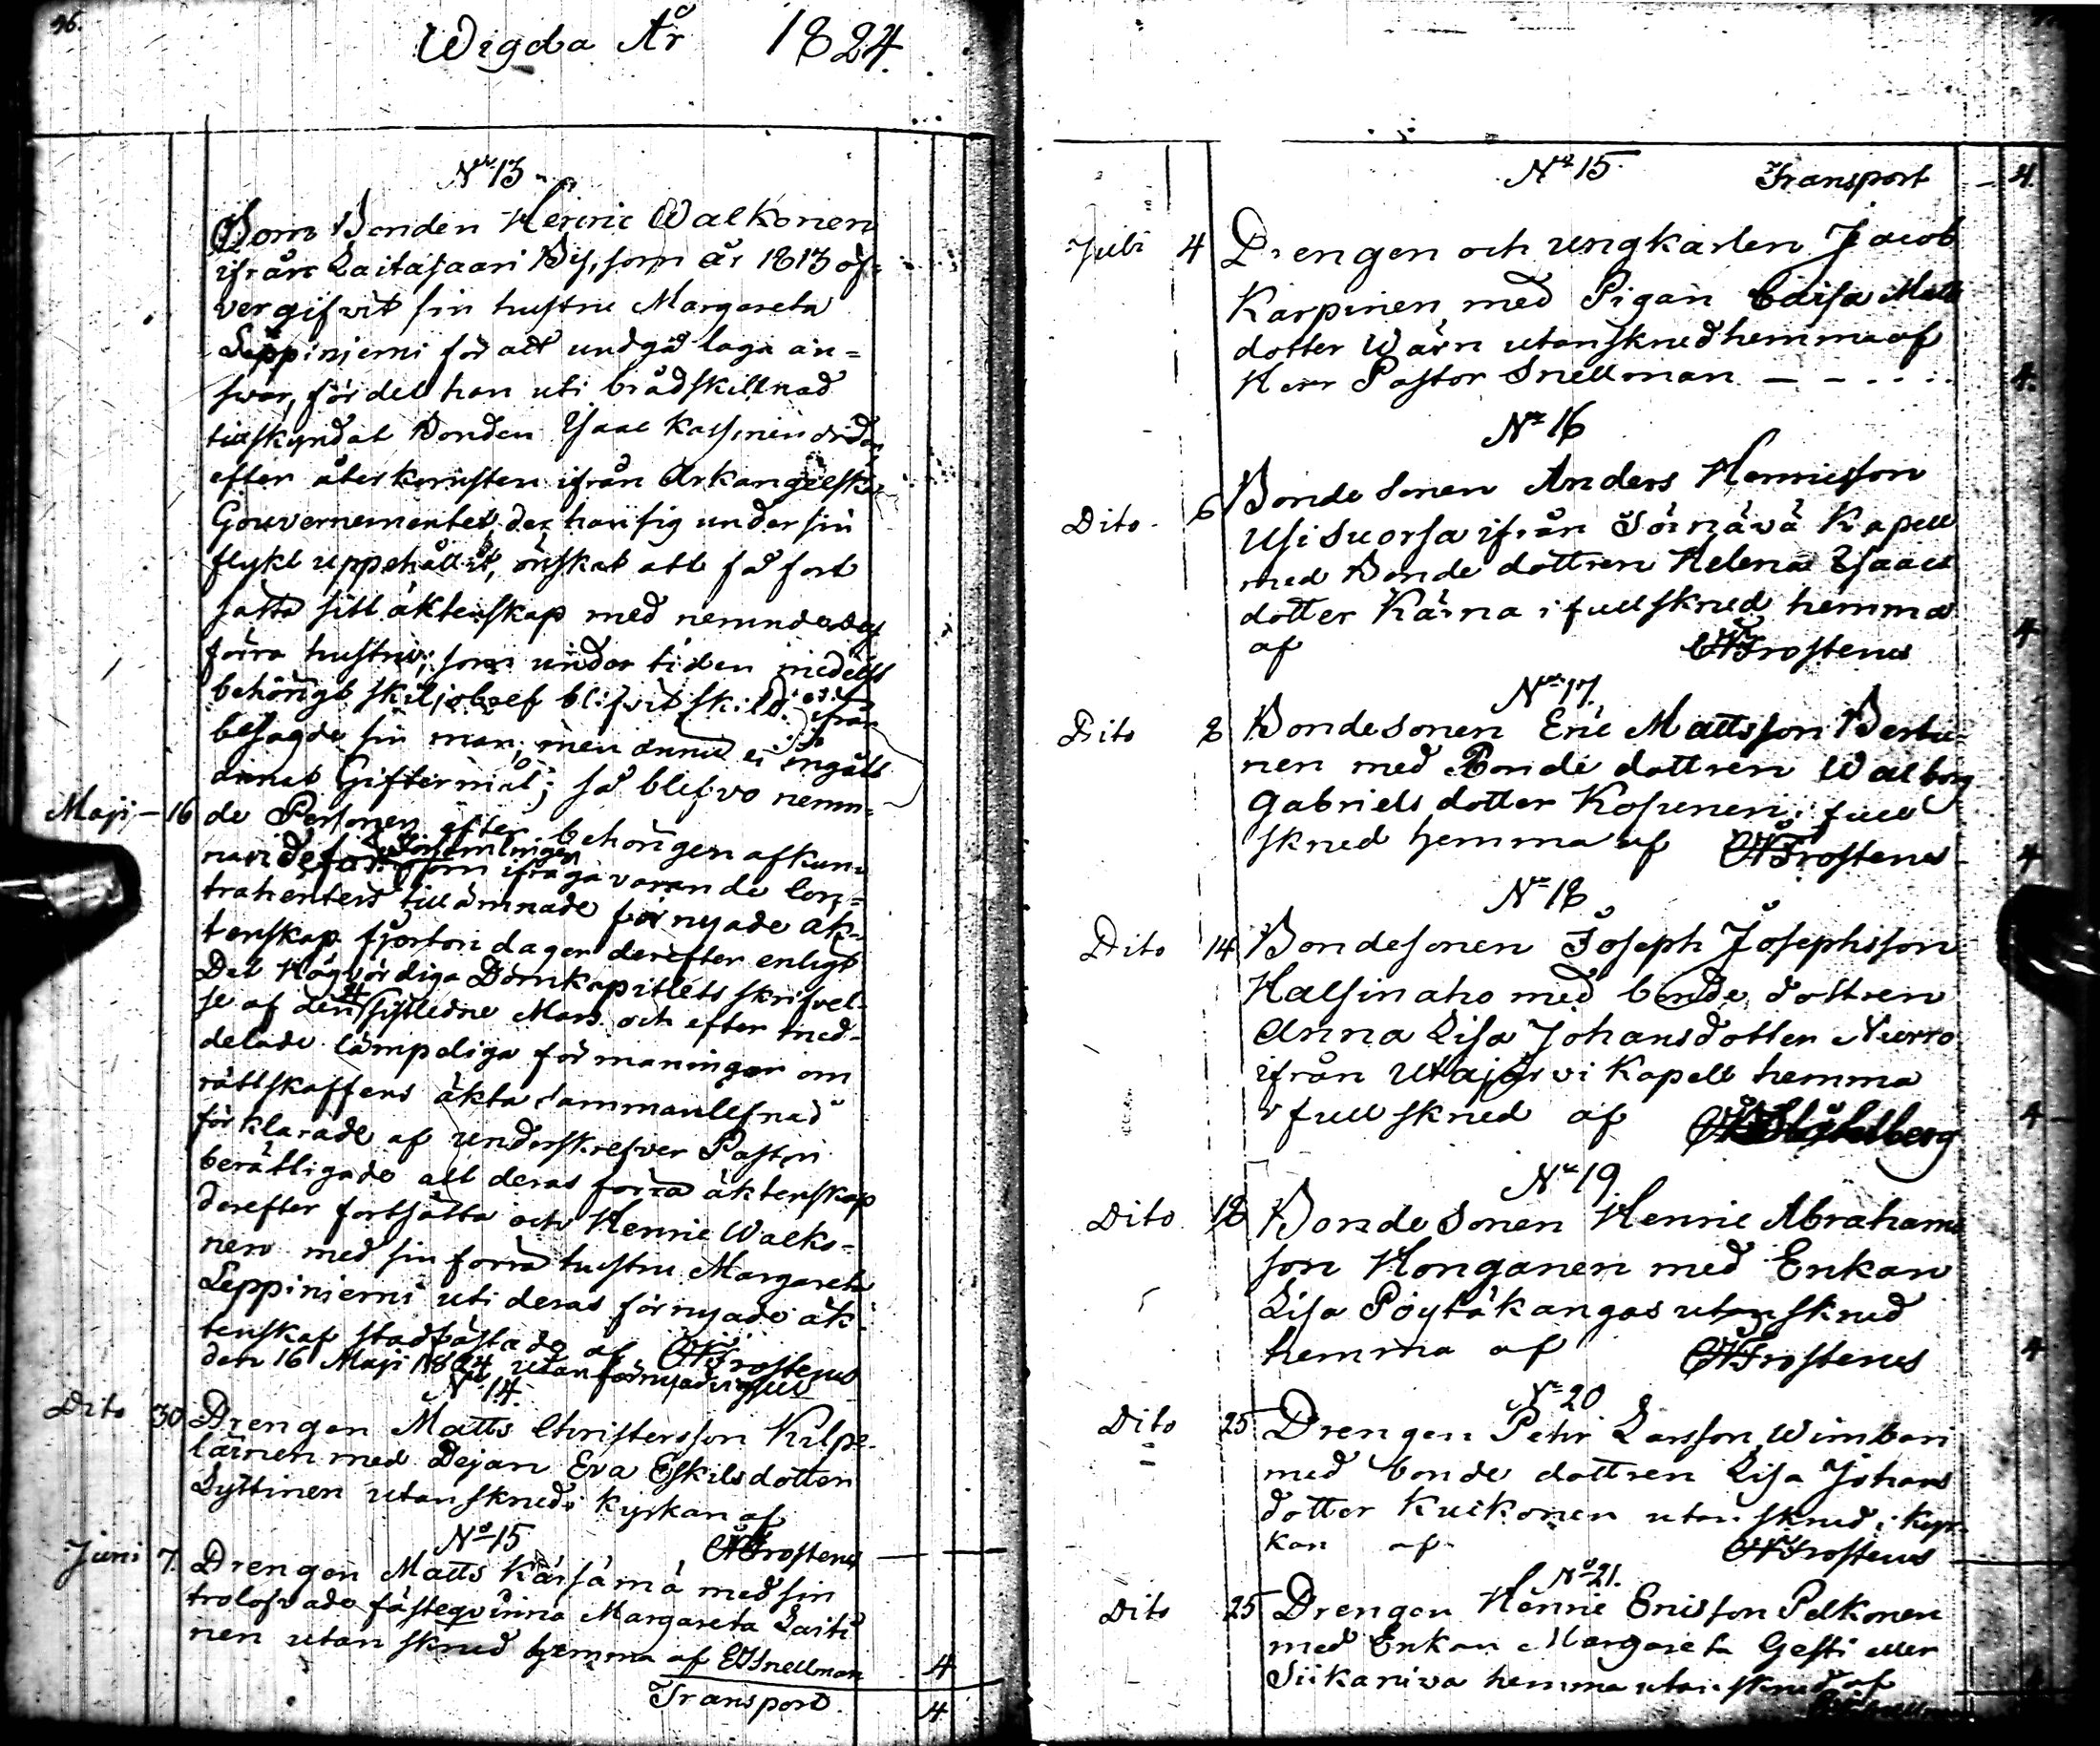 46.
Wigda År 1824.
No 13
Som Bonden Henric Walkonen
ifrån Laitasaari By, som år 1813 öf-
vergifvit sin hustru Margareta
Leppiniemi för att undgå laga an=
svar, för det han uti brådskillnad
tillskyndat Bonden Isaac Kassinen döden
efter återkomsten ifrån Arkangelska
Gouvernementet, der han sig under sin
flykt uppehållit, önskat att få fort
satta sitt äktenskap med nemnde des
förra hustru; som under tiden medelst
behörigt skiljobref blifvit skild ifrån
besagde sin man, men ännu ei ingått
annat Giftermål; så blefvo nemn-
Maji - 16 de Personer efter behörigen afkun-
nande för Församlingen om ifrågavarande Con=
trahenters tillämnade förnyade äk-
tenskap fjorton dagar derefter enligt
Det Högvördiga Domkapitlets skrifvel-
se af den 24 sistledne Mars och efter med-
delade lämpeliga förmaningar om
rättskaffens äkta sammanlefnad
förklarade af underskrefven Pastor
berättigade att deras förra äktenskap
derefter fortsätta och Henric Walko=
nen med sin förra hustru Margareta
Leppiniemi uti deras förnyade äk-
tenskap stadfästade af Frosterus
den 16 Maji 1824 utan förnyad vigsel
No 14.
Dito 30 Drengen Matts Christersson Kilpe-
läinen med Dejan Eva Eskilsdotter
Lyttinen utan skrud i kyrkan af
Frosterus
No 15
Juni 7. Drengen Matts Kärsämä med sin
trolofvade fästeqvinna Margareta Laiti
nen utan skrud hemma af Snellman 4
Transport 4
No 15 Transport - 4.
Juli 4 Drengen och ungkarlen Jacob
Karpinen med Pigan Caisa Matts
dotter Wärn utan skrud hemma af
Herr Pastor Snellman - - - - 4.
No 16
Dito 6 Bonde sonen Anders Henricsson
Usisuorsa ifrån Sörnävä Kapell
med Bonde dottren Helena Isaacs
dotter Kärna i full skrud hemma
af Frosterus 4
No 17.
Dito 8 Bondesonen Eric Mattsson Bertu-
nen med Bonde dottren Walborg
Gabriels dotter Kosunen i full
skrud hemma af Frosterus 4
No 18
Dito 14 Bondesonen Joseph Josephsson
Halsinaho med bonde dottren
Anna Lisa Johansdotter Nurro
ifrån Utajärvi Kapell hemma
i full skrud af Ståhlberg 4
No 19
Dito 18 Bonde sonen Henric Abrahams
son Honganen med Enkan
Lisa Pöytäkangas utan skrud
hemma af Frosterus 4
No 20
Dito 25 Drengen Petri Larsson Wimbari
med bonde dottren Lisa Johans
dotter Kuikonen utan skrud i kyr-
kan af Frosterus
No 21.
Dito 25 Drengen Henric Ericsson Pelkonen
med Enkan Margareta Gesti eller
Siikaniva hemma utan skrud af
Snellman